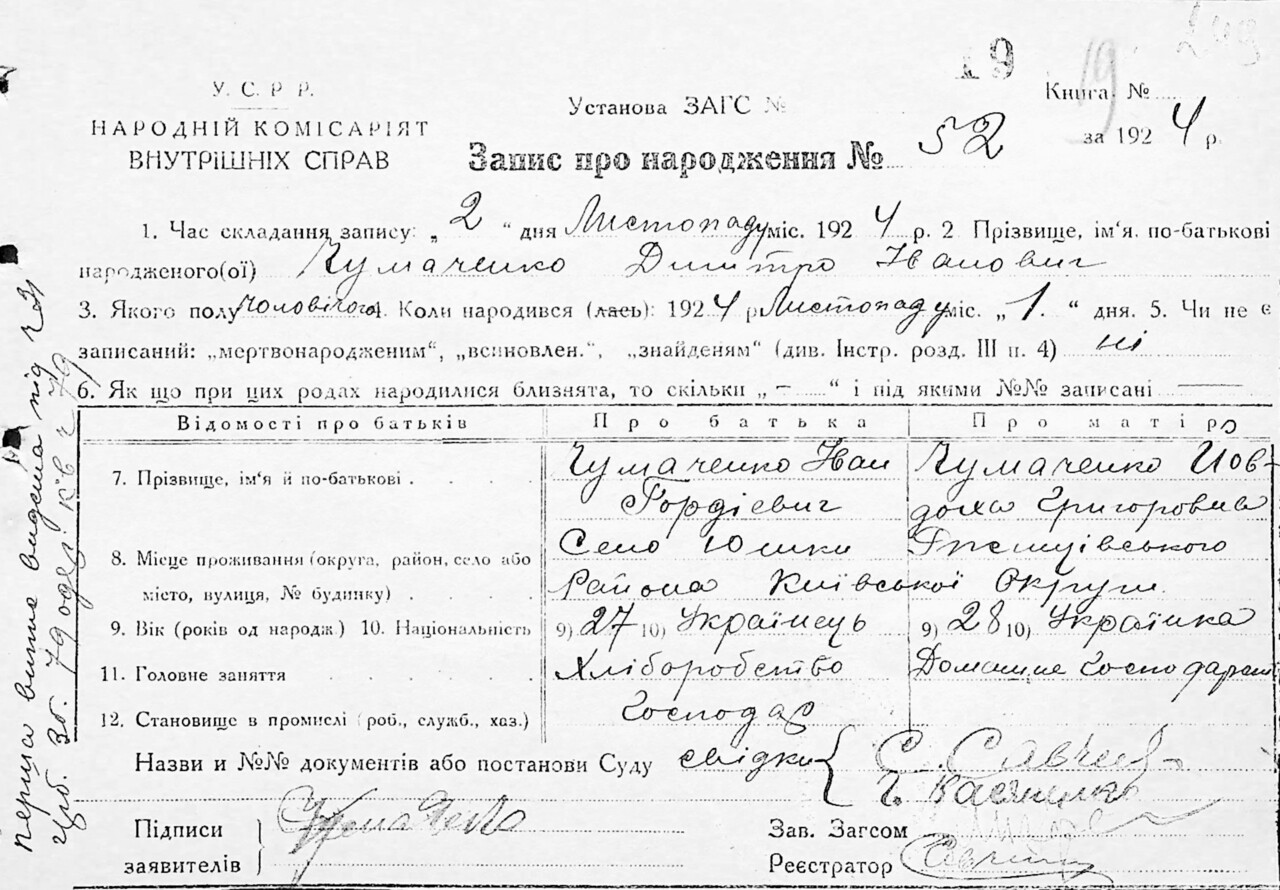 19
У. С. Р. Р.
НАРОДНІЙ КОМІСАРІЯТ
ВНУТРІШНІХ СПРАВ
Установа ЗАГС №
Книга № 19
за 1924 р.
Запис про народження № 52
1. Час складання запису: „ 2 “ дня Листопаду міс. 1924 р. 2 Прізвище, ім'я. по-батькові
народженого(ої) Чумаченко Дмитро Іванович
3. Якого полу чоловічого 4. Коли народився (лась): 1924 р Листопаду міс. „ 1. “ дня. 5. Чи не є
записаний: „мертвонародженим“, „всиновлен.“, „знайденям“ (див. Інстр. розд. III п. 4) ні
6. Як що при цих родах народилися близнята, то скільки „ – “ і під якими №№ записані —
Відомості про батьків Про батька Про матір
7. Прізвище, ім'я й по-батькові . . . . Чумаченко Іван Чумаченко Йов-
Гордієвич доха Григоровна
8. Місце проживання (округа, район, село або Село Юшки
місто, вулиця, № будинку) . . . . Района Київської Округи.
9. Вік (років од народж.) 10. Національність 9) 27 10) Українець 9) 28 10) Українка
11. Головне заняття . . . . . . Хліборобство Домашнє Господарст
12. Становище в промислі (роб., служб., хаз.) Господар
Назви и №№ документів або постанови Суду свідки { С. Савчен
Підписи
заявителів }
Зав. Загсом
Реєстратор
перша випис видена під ч 31
79